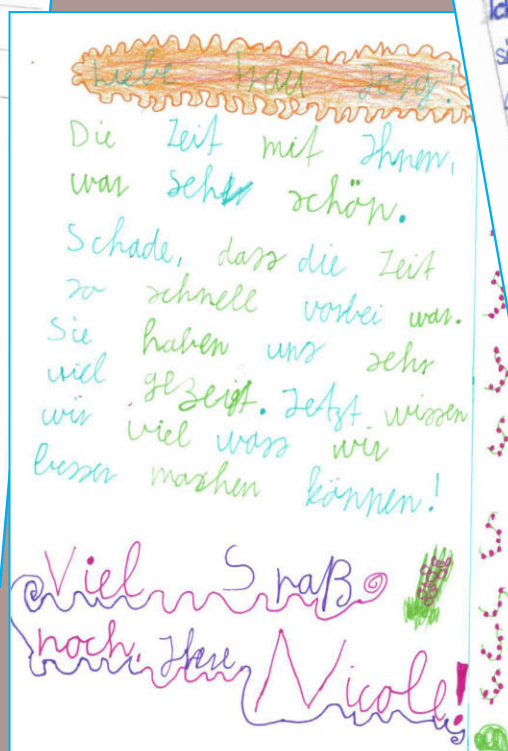 Liebe Frau Jorg!
Die Zeit mit Ihnen,
war sehr schön.
Schade, dass die Zeit
so schnell vorbei war.
Sie haben uns sehr
viel gezeigt. Jetzt wissen
wir viel wass wir
besser maschen können!
Viel Spaß
noch, Ihre
Nicole!